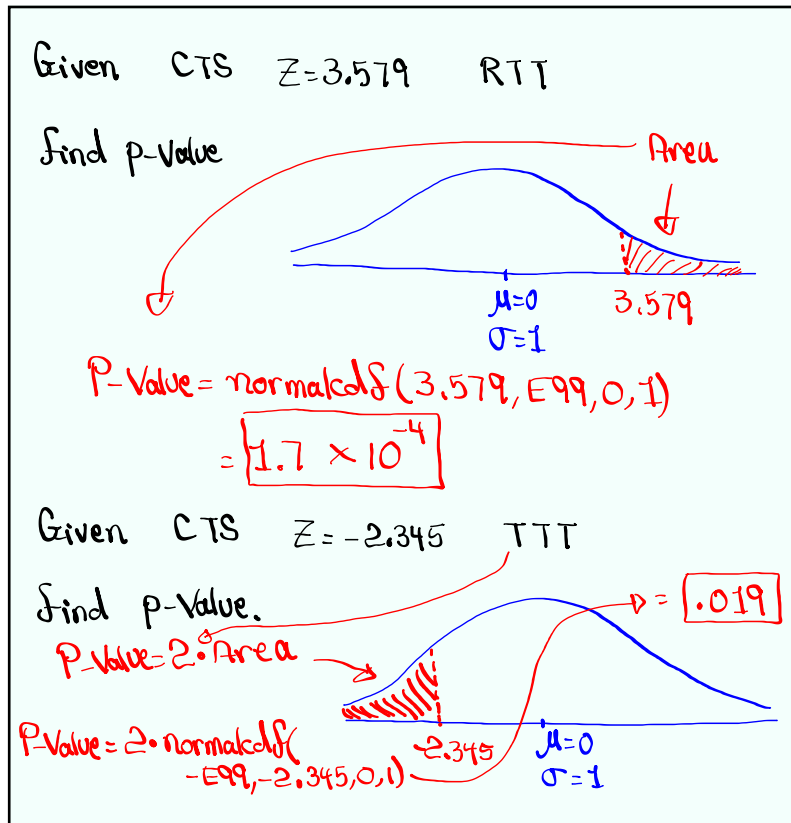 Given CTS Z=3.579 RTT
find P-Value
Area
μ=0
σ=1
3.579
P-Value = normalcdf(3.579, E99, 0, 1)
= 1.7 × 10^-4
Given CTS Z=-2.345 TTT
find P-Value.
= .019
P-Value = 2·Area
P-Value = 2·normalcdf(
-E99, -2.345, 0, 1)
-2.345
μ=0
σ=1